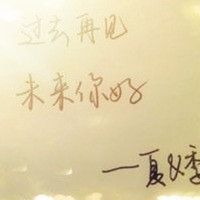 过去再见
未来你好
—夏季